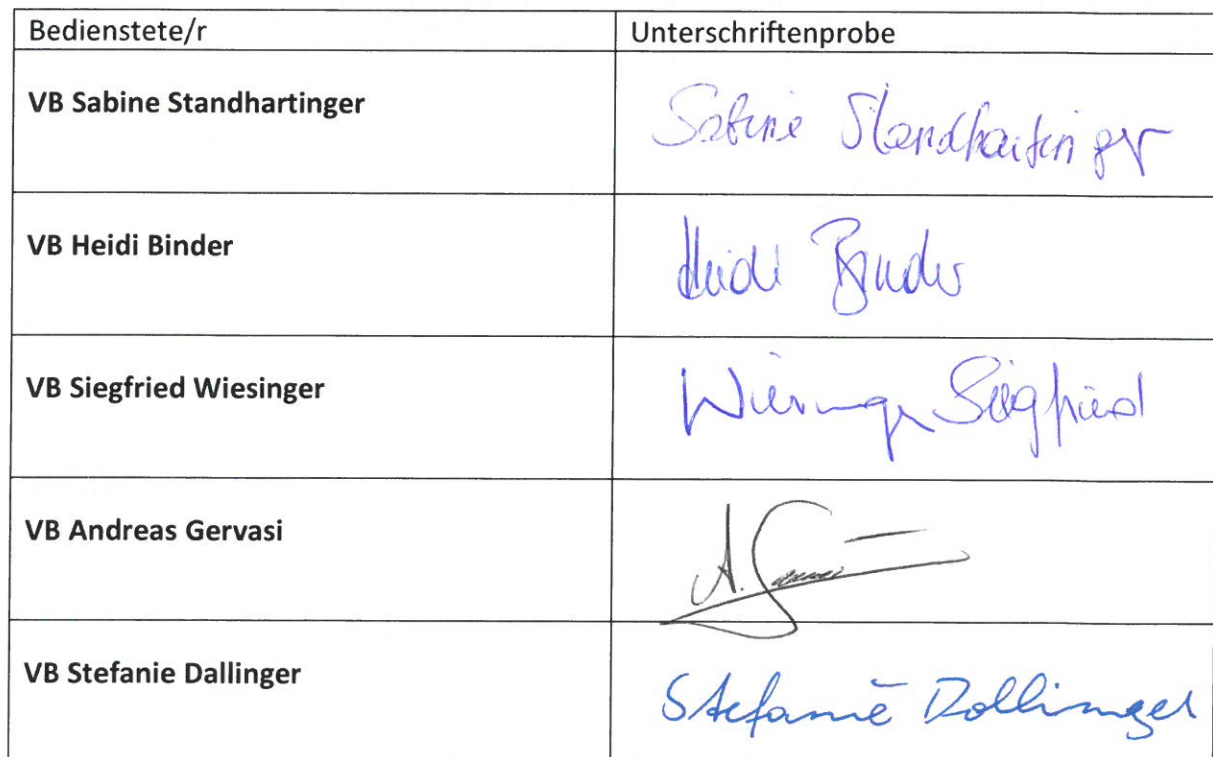 Bedienstete/r Unterschriftenprobe
VB Sabine Standhartinger Sabine Standhartinger
VB Heidi Binder Heidi Binder
VB Siegfried Wiesinger Wiesinger Siegfried
VB Andreas Gervasi A.
VB Stefanie Dallinger Stefanie Dallinger